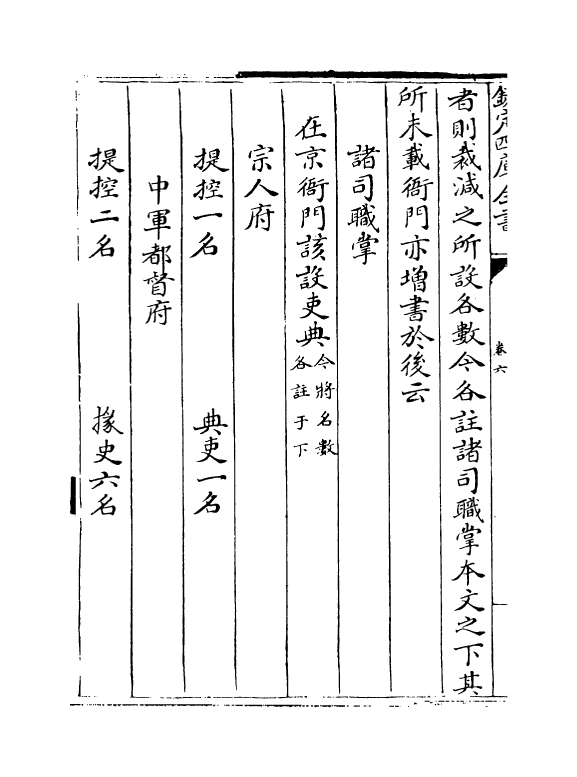 欽定四庫全書
卷六
者則裁減之所設各數今各註諸司職掌本文之下其
所未載衙門亦增書於後云
諸司職掌
在京衙門該設吏典今將名數各註于下
宗人府
提控一名 典吏一名
中軍都督府
提控二名 掾史六名